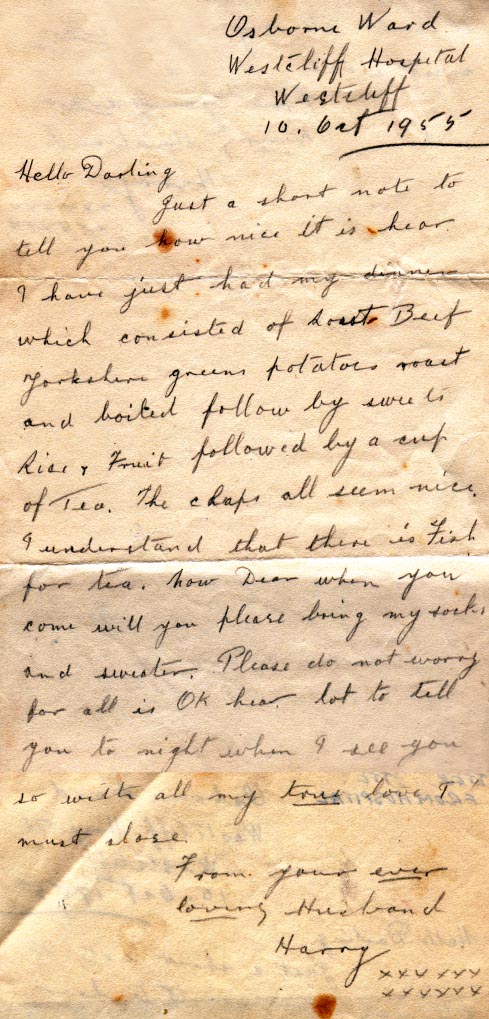 Osborne Ward
Westcliff Hospital
Westcliff
10. Oct 1955
Hello Darling
Just a short note to
tell you how nice it is hear.
I have just had my dinner
which consisted of Roast Beef
Yorkshire greens potatoes roast
and boiled follow by sweets
Rise & Fruit followed by a cup
of Tea. The chaps all seem nice.
I understand that there is Fish
for tea. now Dear when you
come will you please bring my socks
and sweater. Please do not worry
for all is OK hear. lot to tell
you to night when I see you
so with all my true love I
must close.
From your ever
loving Husband
Harry
xxxxxx
xxxxxx